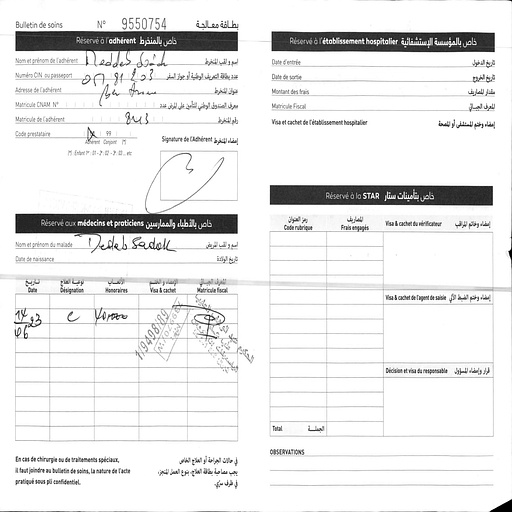 Bulletin de soins N° 9550754 بطاقة معالجة
Réservé à l'adhérent خاص بالمنخرط
Nom et prénom de l'adhérent Meddeb Sadok اسم و لقب المنخرط
Numéro CIN, ou passeport عدد بطاقة التعريف الوطنية أو جواز السفر
Adresse de l'adhérent Ben Arous عنوان المنخرط
Matricule CNAM N° معرف الصندوق الوطني للتأمين على المرض عدد
Matricule de l'adhérent 843 رقم المنخرط
Code prestataire 99
Adhérent Conjoint (*)
(*) : Enfant 1er : 01 - 2° : 02 - 3° : 03 ... etc
Signature de l'Adhérent إمضاء المنخرط
Réservé aux médecins et praticiens خاص بالأطباء والممارسين
Nom et prénom du malade Meddeb Sadok اسم و لقب المريض
Date de naissance تاريخ الولادة
تاريخ نوعية العلاج الأتعاب الإمضاء و الختم المعرف الجبائي
Date Désignation Honoraires Visa & cachet Matricule fiscal
14 06 23 C
1/9498/89
En cas de chirurgie ou de traitements spéciaux,
il faut joindre au bulletin de soins, la nature de l'acte
pratiqué sous pli confidentiel.
في حالات الجراحة أو العلاج الخاص
يجب مصاحبة بطاقة العلاج، بنوع العمل المنجز،
في ظرف سري.
Réservé à l'établissement hospitalier خاص بالمؤسسة الإستشفائية
Date d'entrée تاريخ الدخول
Date de sortie تاريخ الخروج
Montant des frais مقدار المصاريف
Matricule Fiscal المعرف الجبائي
Visa et cachet de l'établissement hospitalier إمضاء وختم المستشفى أو المصحة
Réservé à la STAR خاص بتأمينات ستار
رمز العنوان المصاريف
Code rubrique Frais engagés Visa & cachet du vérificateur إمضاء وخاتم المراقب
Visa & cachet de l'agent de saisie إمضاء وختم الضبط الآلي
Décision et visa du responsable قرار وإمضاء المسؤول
Total الجملة
OBSERVATIONS